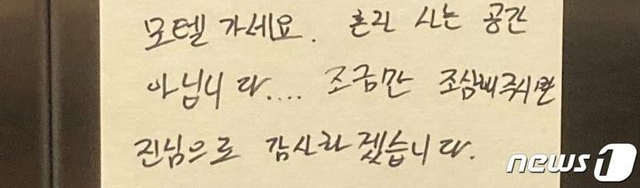 모텔 가세요. 혼자 사는 공간
아닙니다.... 조금만 조심해주시면
진심으로 감사하겠습니다.
news1